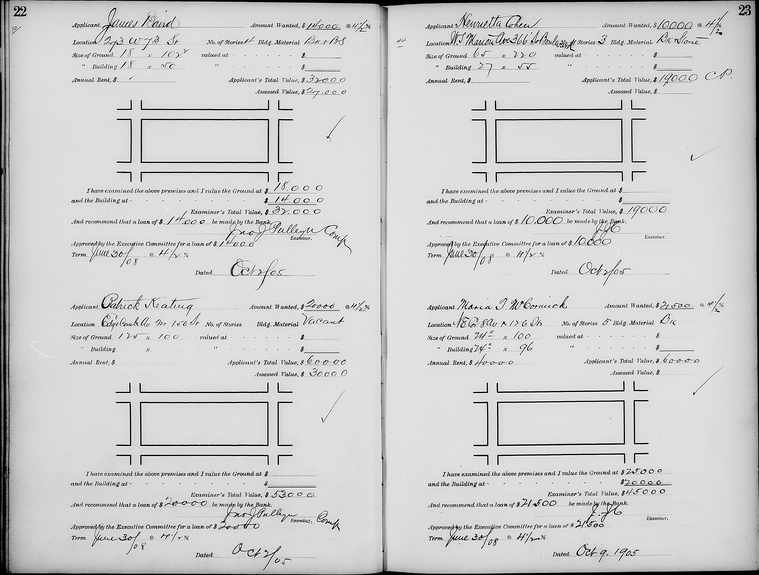 22
Applicant James Baird Amount Wanted, $ 14000 @ 4 1/2 %
Location 273 W 73 St No. of Stories 4 Bldg. Material Bk & BS
Size of Ground 18 x 102² valued at - - - - - $
" Building 18 x 50 " - - - - - $
Annual Rent, $ Applicant's Total Value, $ 32000
Assessed Value, $ 27.000
I have examined the above premises and I value the Ground at $ 18.000
and the Building at - - - - - $ 14.000
Examiner's Total Value, $ 32.000
And recommend that a loan of $ 14000 be made by the Bank.
Jno J Pulleyn Comp
Examiner.
Approved by the Executive Committee for a loan of $ 14000
Term June 30/08 @ 4 1/2 %
Dated Oct 2/05
Applicant Patrick Keating Amount Wanted, $ 20000 @ 4 1/2 %
Location No. of Stories Bldg. Material Vacant
Size of Ground 125 x 100 valued at - - - - - $
" Building x " - - - - - $
Annual Rent, $ Applicant's Total Value, $ 60000
Assessed Value, $ 30000
I have examined the above premises and I value the Ground at $
and the Building at - - - - - $
Examiner's Total Value, $ 53000
And recommend that a loan of $ 20000 be made by the Bank.
Jno J Pulleyn Comp
Examiner.
Approved by the Executive Committee for a loan of $ 20000
Term June 30/08 @ 4 1/2 %
Dated Oct 2/05
23
Applicant Henrietta Cohen Amount Wanted, $ 10000 @ 4 1/2
Location W.S Marion Ave 366 Stories 3 Bldg. Material Bk Stone
Size of Ground 65 x 220 valued at - - - - - $
" Building 27 x 55 " - - - - - $
Annual Rent, $ Applicant's Total Value, $ 19000 C.P.
Assessed Value, $
I have examined the above premises and I value the Ground at $
and the Building at - - - - - $
Examiner's Total Value, $ 19000
And recommend that a loan of $ 10.000 be made by the Bank.
Examiner.
Approved by the Executive Committee for a loan of $ 10.000
Term June 30/08 @ 4 1/2 %
Dated Oct 2/05
Applicant Maria T McCormick Amount Wanted, $ 21500 @ 4 1/2
Location 8 Av & 126 St No. of Stories 5 Bldg. Material Bk
Size of Ground 74² x 100 valued at - - - - - $
" Building 74² x 96 " - - - - - $
Annual Rent, $ 40000 Applicant's Total Value, $ 60000
Assessed Value, $
I have examined the above premises and I value the Ground at $ 25000
and the Building at - - - - - $ 20000
Examiner's Total Value, $ 45000
And recommend that a loan of $ 21.500 be made by the Bank.
Examiner.
Approved by the Executive Committee for a loan of $ 21500
Term June 30/08 @ 4 1/2 %
Dated Oct 9. 1905